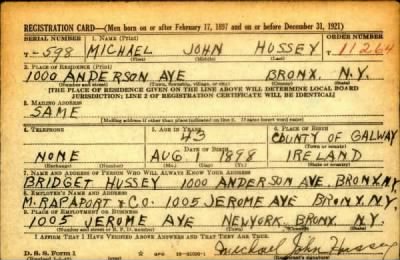 REGISTRATION CARD—(Men born on or after February 17, 1897 and on or before December 31, 1921)
SERIAL NUMBER 1. NAME (Print) ORDER NUMBER
T-598 MICHAEL JOHN HUSSEY 11264
(First) (Middle) (Last)
2. PLACE OF RESIDENCE (Print)
1000 ANDERSON AVE BRONX, N.Y.
(Number and street) (Town, township, village, or city) (County) (State)
[THE PLACE OF RESIDENCE GIVEN ON THE LINE ABOVE WILL DETERMINE LOCAL BOARD
JURISDICTION; LINE 2 OF REGISTRATION CERTIFICATE WILL BE IDENTICAL]
3. MAILING ADDRESS
SAME
[Mailing address if other than place indicated on line 2. If same insert word same]
4. TELEPHONE 5. AGE IN YEARS 6. PLACE OF BIRTH
43 COUNTY OF GALWAY
DATE OF BIRTH (Town or county)
NONE AUG 1 1898 IRELAND
(Mo.) (Day) (Yr.) (State or country)
7. NAME AND ADDRESS OF PERSON WHO WILL ALWAYS KNOW YOUR ADDRESS
BRIDGET HUSSEY 1000 ANDERSON AVE. BRONX, N.Y.
8. EMPLOYER'S NAME AND ADDRESS
M. RAPAPORT & CO. 1005 JEROME AVE BRONX, N.Y.
9. PLACE OF EMPLOYMENT OR BUSINESS
1005 JEROME AVE NEW YORK, BRONX, N.Y.
(Number and street or R. F. D. number) (Town) (County) (State)
I AFFIRM THAT I HAVE VERIFIED ABOVE ANSWERS AND THAT THEY ARE TRUE.
D. S. S. Form 1
Michael John Hussey